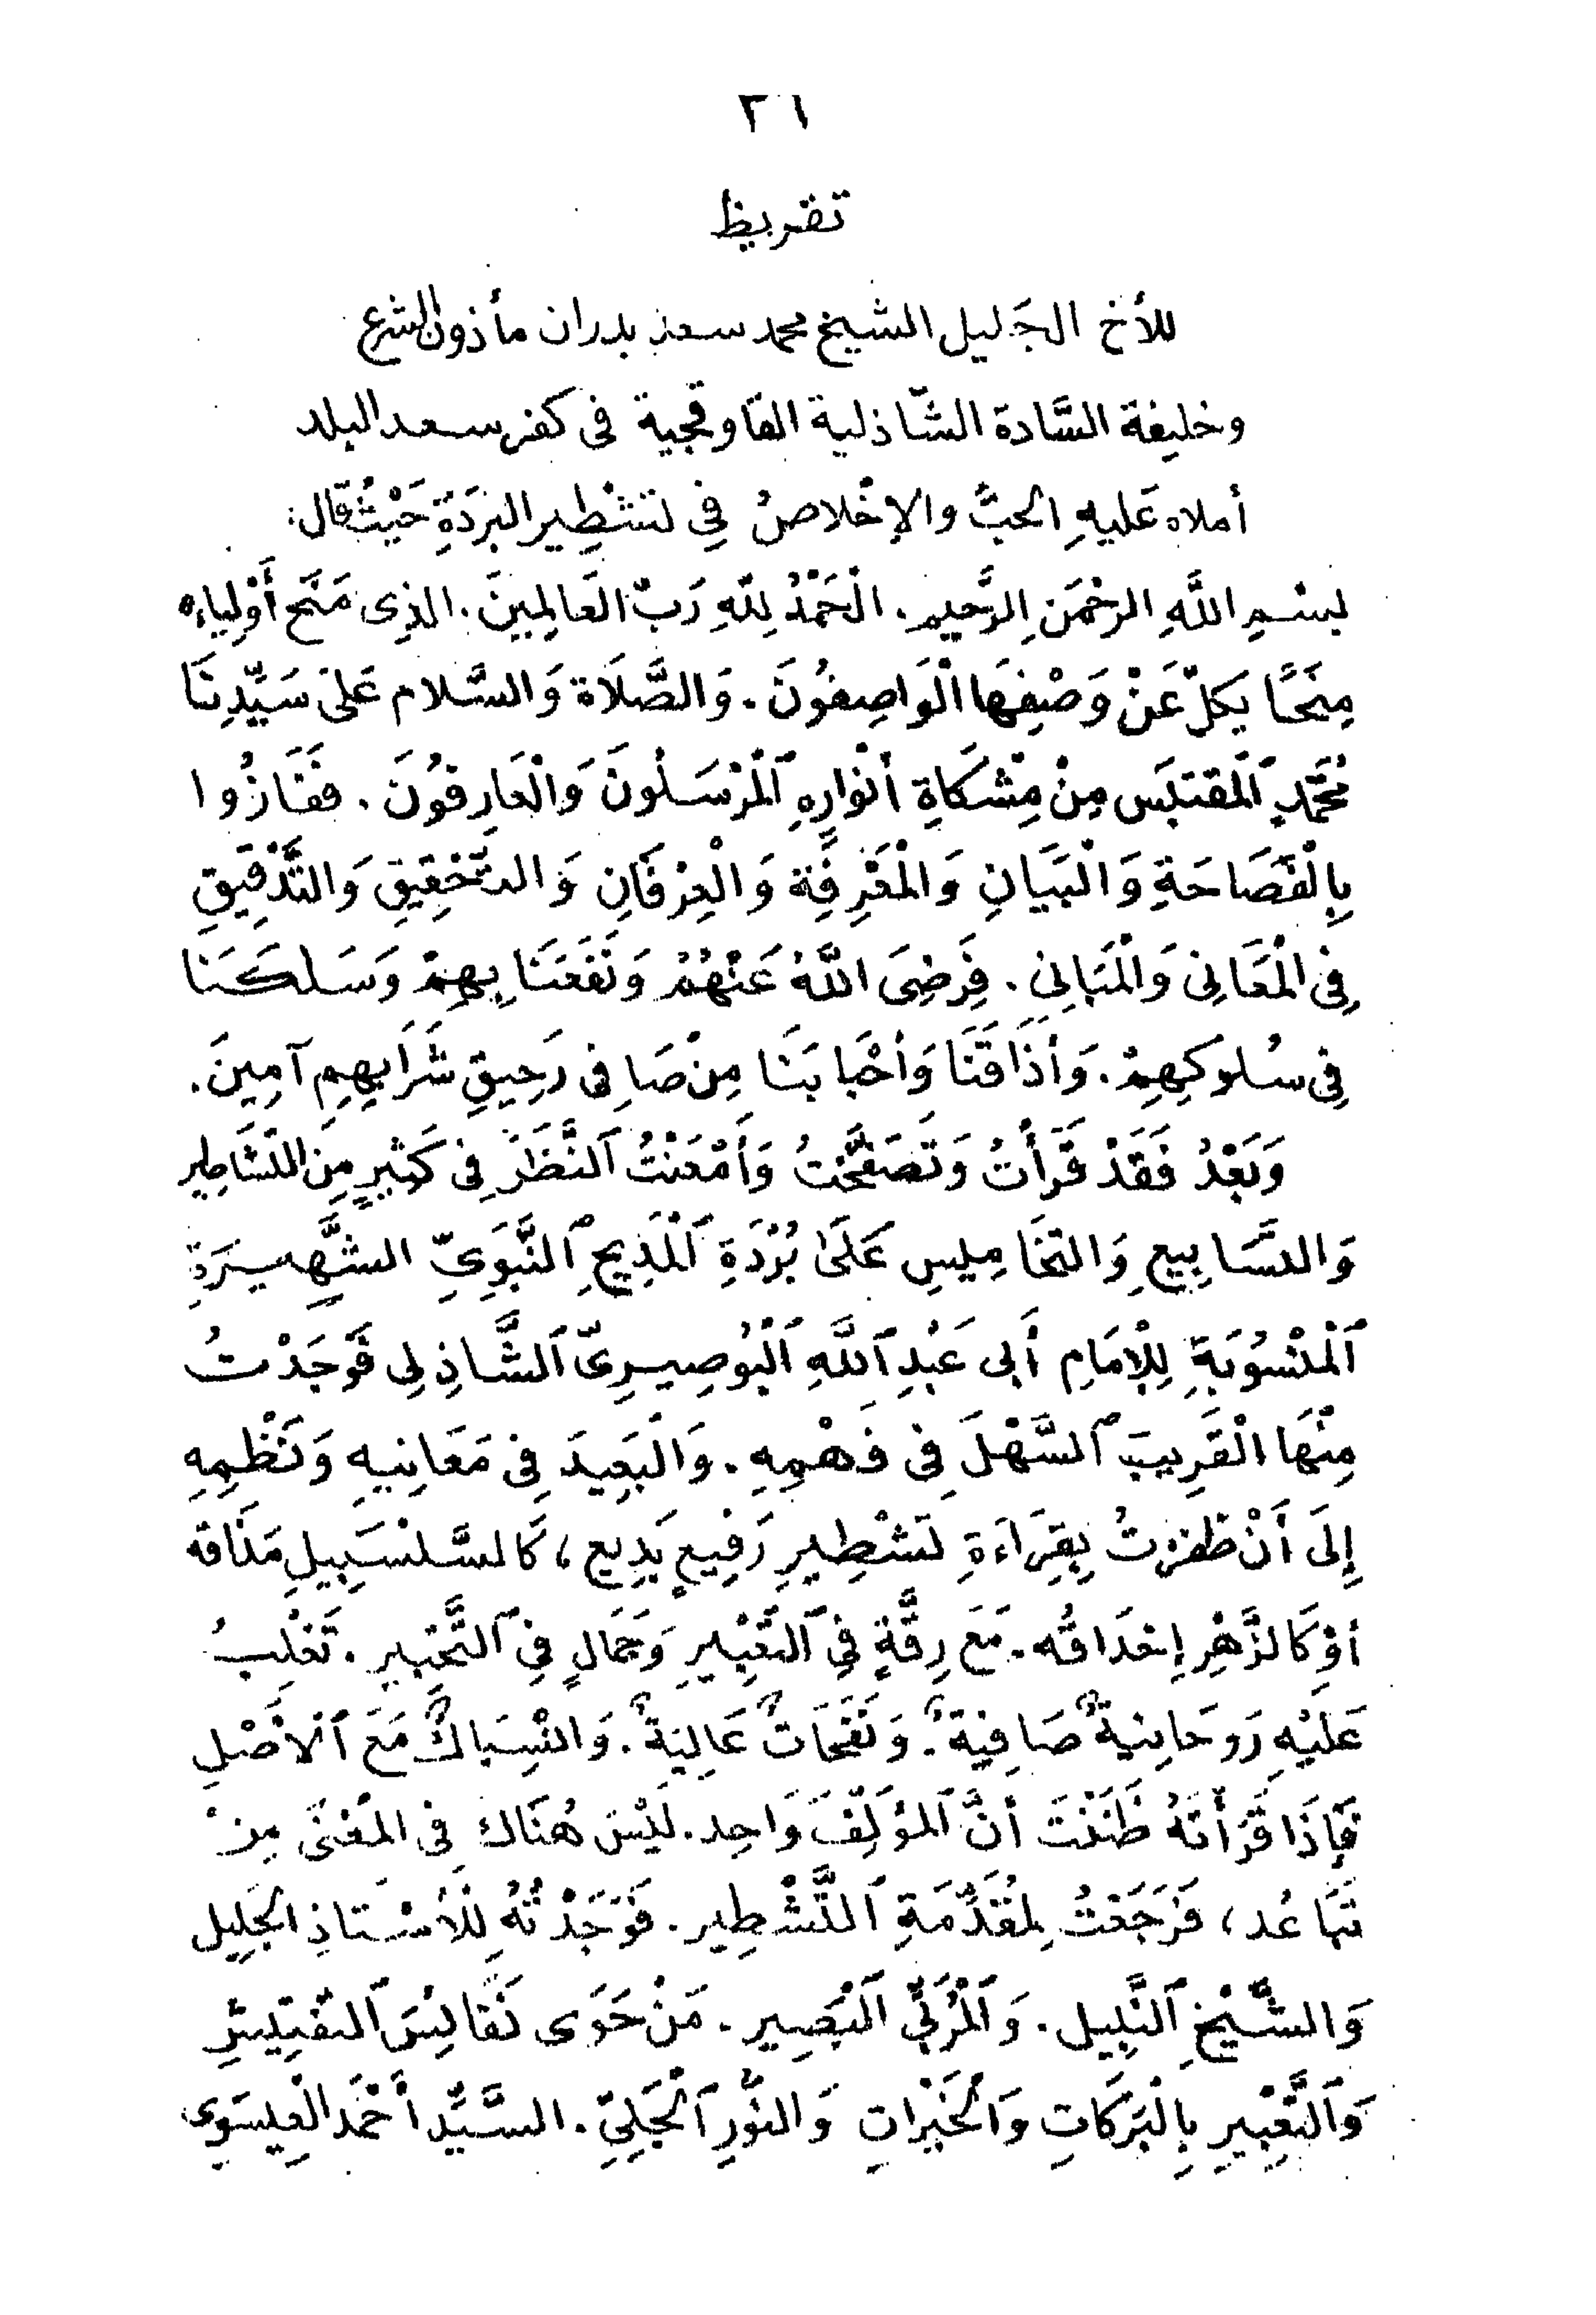 ٢٦
تقريظ
للأخ الجَليل الشيخ محمد سعد بدران مأذون الشرع
وخليفة السَّادة الشّاذلية القاوقجية فى كفر سعد البلد
أملاه عَليهِ الحبُّ والإخْلاصُ فِي تَشْطِير البَرَدَةِ حَيْثُ قال:
بسْمِ اللَّهِ الرحْمَنِ الرَّحيمِ. الْحَمْدُ لِلَّهِ رَبِّ العَالِمِينَ. الذِى مَنَحَ أَوْلِيَاءَه
مِنَحًا يَكلّ عَنْ وَصْفِهَا الْوَاصِفُونَ. وَالصَّلَاة وَالسَّلام عَلىَ سَيِّدِنَا
مُحَمَّدٍ ٱلْمقتَبَس مِنْ مِشْكَاةِ أنْوَارِهِ ٱلْمُرْسَلُونَ وَالْعَارِفُونَ. فَفَازُوا
بِالْفَصَاحَةِ وَالْبَيَانِ وَالْمَعْرِفَةِ وَالْعِرْفَانِ وَالتَّحْقِيقِ وَالتَّدْقِيقِ
فِى الْمَعَانِى وَالْمَبَانِى. فَرَضِىَ اللَّهُ عَنْهُمْ وَنَفَعَنَا بِهِمْ وَسَلَكَنَا
فِى سُلوكِهِمْ. وَأذَاقَنَا وَأحْبَابَنَا مِنْ صَافِى رَحِيقِ شَرَابِهِم آمِينَ.
وَبَعْدُ فَقَدْ قَرَأْتُ وَتَصَفَّحْتُ وَأَمْعَنْتُ ٱلنَّظَرَ فِى كَثِيرٍ مِنَ التَّشَاطِير
وَالتَّسَابِيعِ وَالتَّخَامِيسِ عَلَىٰ بُرْدَةِ ٱلْمَدِيحِ ٱلنَّبَوِيِّ الشَّهِيرَةِ
ٱلْمَنْسُوبَةِ لِلْإِمَامِ أَبِى عَبْدِ ٱللَّهِ ٱلْبُوصِيرِىّ ٱلشَّاذِلِى فَوَجَدْتُ
مِنْهَا الْقَرِيبَ ٱلسَّهْلَ فِى فَهْمِهِ. وَالْبَعِيدَ فِى مَعَانِيهِ وَنَظْمِهِ
إِلَى أَنْ ظفرْتُ بِقِرَاءَةِ تَشْطِيرٍ رَفِيعٍ بَدِيعٍ، كَالسَّلسَبِيلِ مَذَاقه
أوْ كَالزَّهْرِ إِغدَاقُه. مَعَ رِقَّةٍ فِى ٱلتَّعْبِيرِ وَجَمَالٍ فِى ٱلتَّحْبِيرِ. تَغْلِبُ
عَلَيْهِ رَوحَانِيةٌ صَافِيَةٌ. وَنَفَحَاتٌ عَالِيَةٌ. وَانْسِبَاكٌ مَعَ ٱلْأَصْلِ
فَإِذَا قَرَأْتَهُ ظَنَنْتَ أنَّ ٱلْمُؤَلِّفَ وَاحِد. لَيْسَ هُنَاكَ فِى المَعْنَى مِنْ
تَبَاعُد، فَرَجَعْتُ لِمُقَدِّمَةِ ٱلتَّشْطِيرِ. فَوَجَدْتُهُ لِلْأسْتَاذِ الجَلِيلِ
وَالشَّيْخِ ٱلنَّبِيلِ. وَٱلْمُرَبِّي ٱلْبَصِيرِ. مَنْ حَوَى نَفَائِسَ ٱلتَّفْتِيشِ
وَٱلتَّعْبِيرِ بِالْبَرَكَاتِ وَٱلْخَيْرَاتِ وَالنُّورِ ٱلْجَلِيِّ. السَّيِّد أَحْمَد الْعِيسَوِى